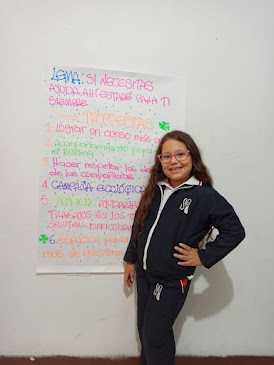 LEMA: SI NECESITAS
AYUDA AHÍ ESTARÉ PARA TI
SIEMPRE
PROPUESTAS
1. Lograr un curso más
2. Acompañamiento para
el Bullying
3. Hacer respetar los de
de los compañeros
4. CAMPAÑA ECOLÓGICA
5. AYUDAR
TRABAJOS EN LOS
6. Espacios para
más de nuestra